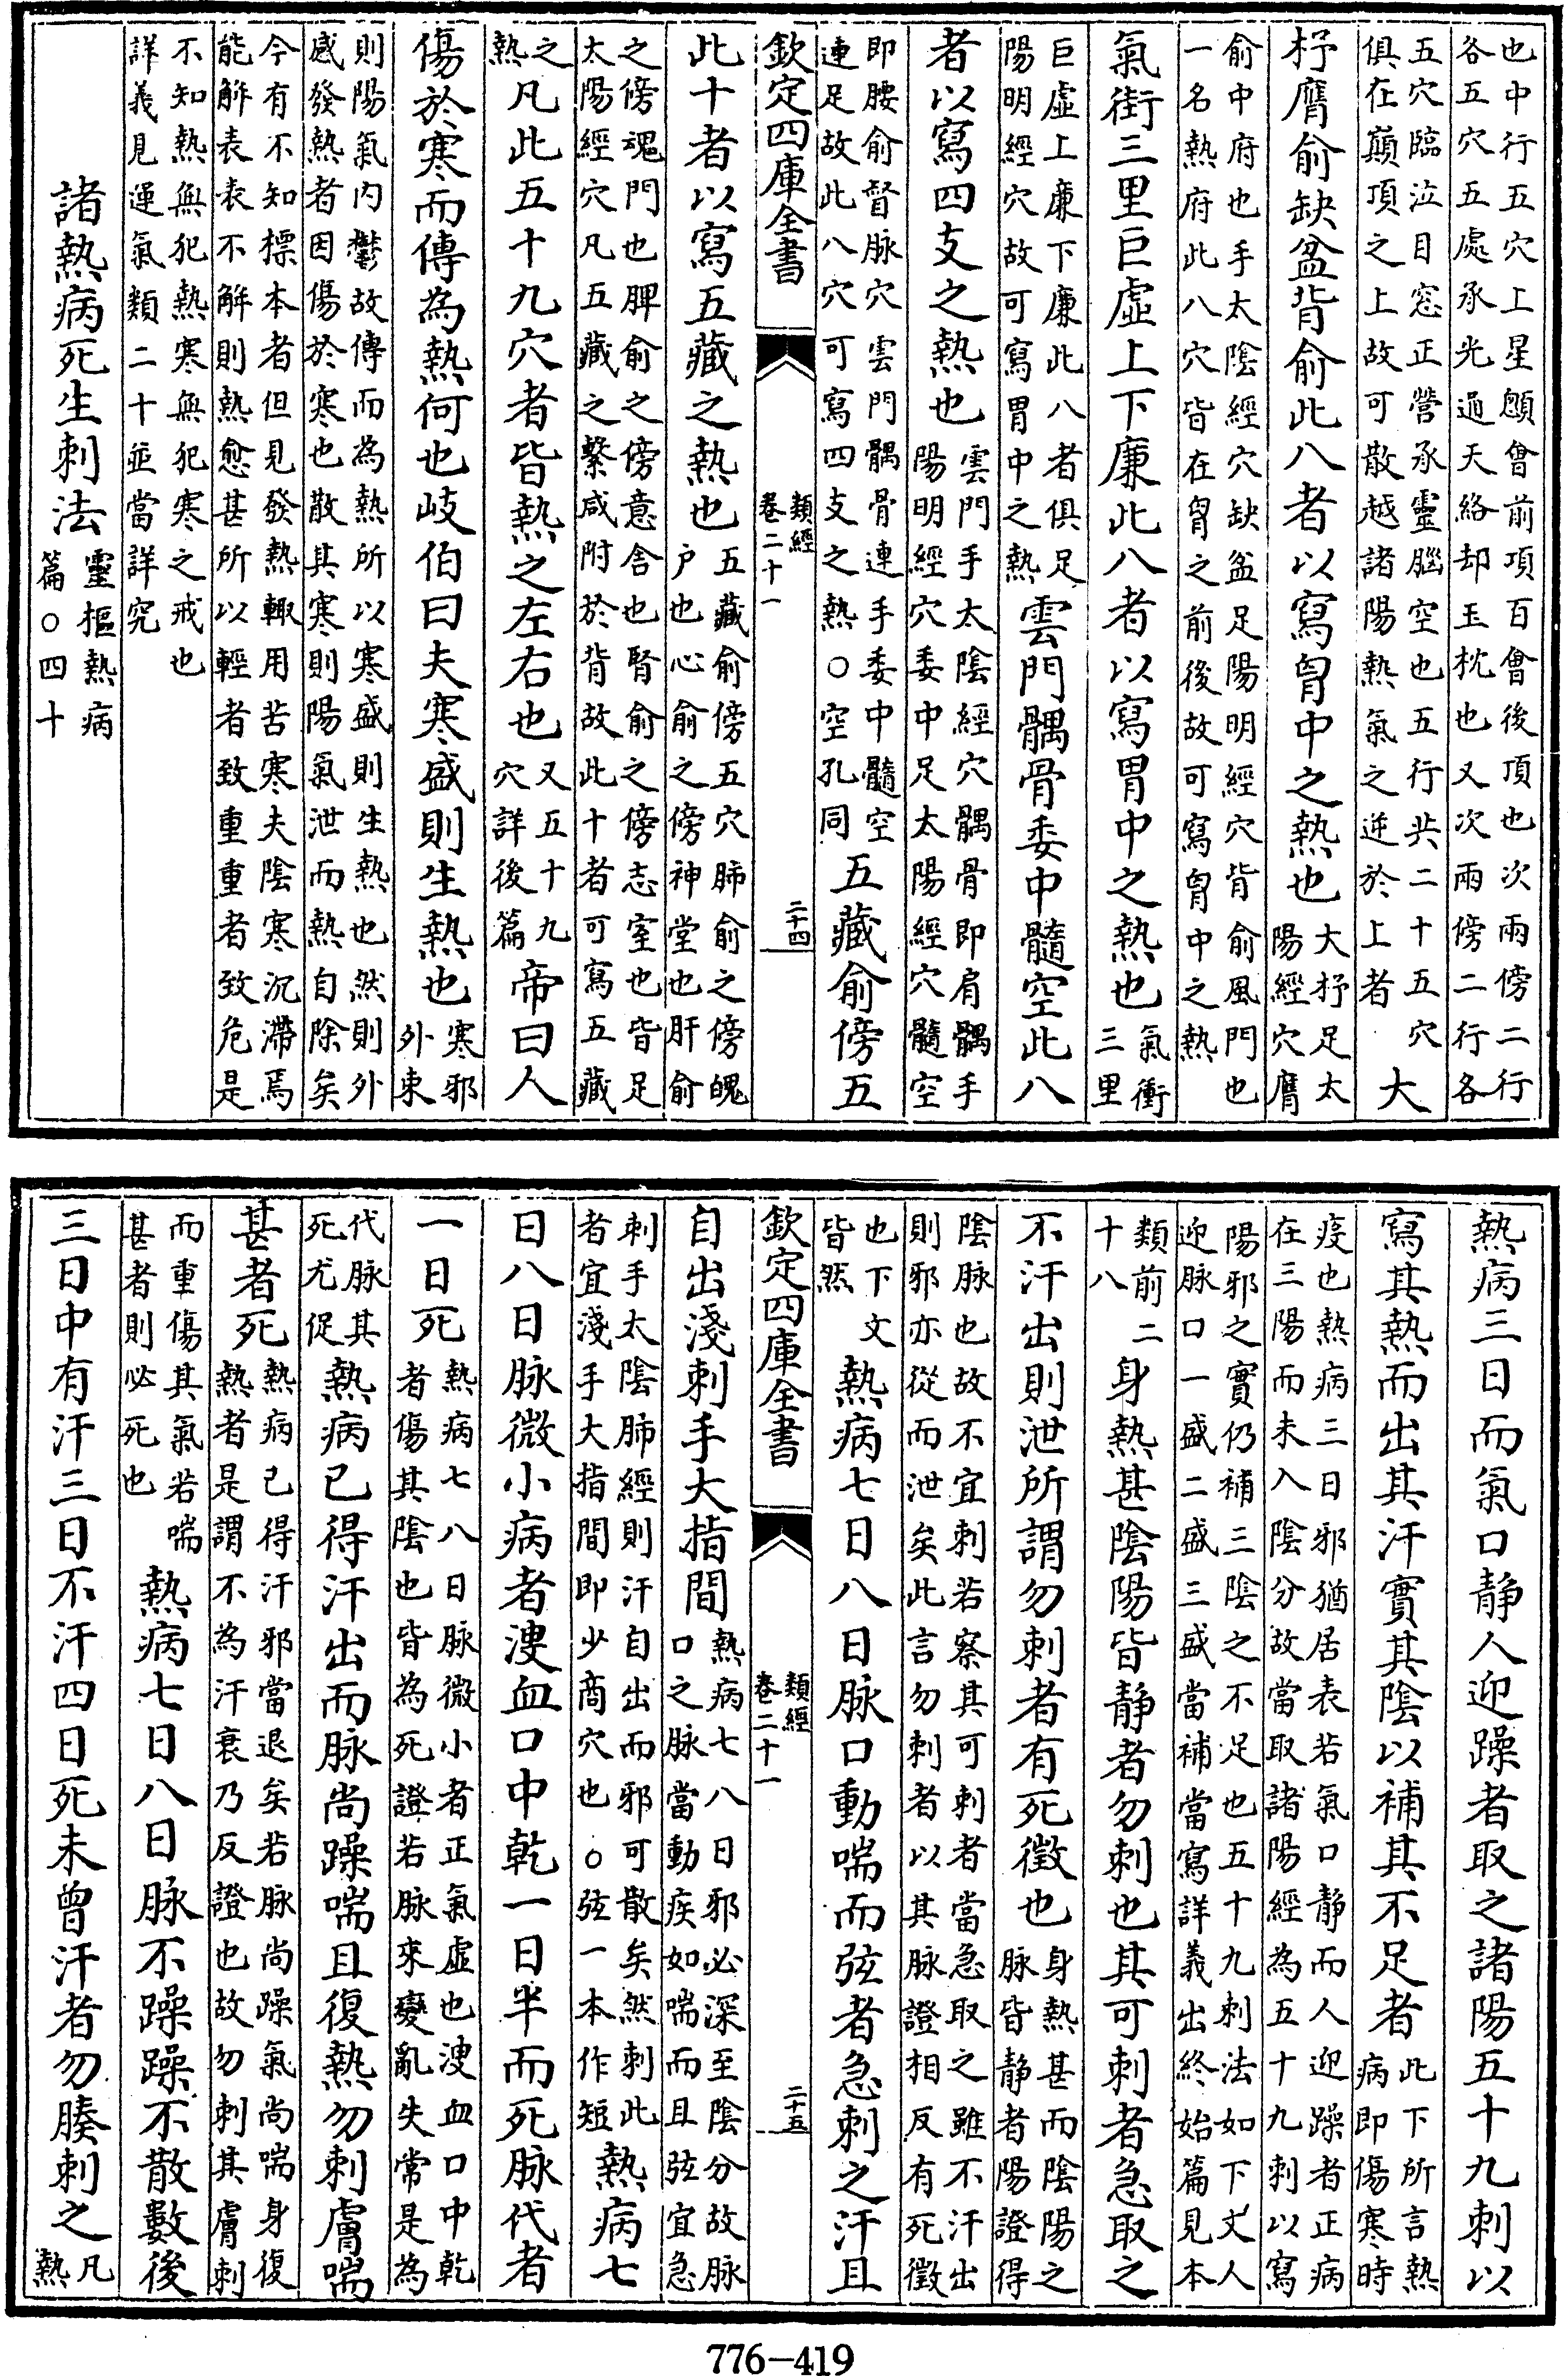 也中行五穴上星顖會前項百會後頂也次兩傍二行
各五穴五處承光通天絡却玉枕也又次兩傍二行各
五穴臨泣目窓正營承靈腦空也五行共二十五穴
俱在巔頂之上故可散越諸陽熱氣之逆於上者
大
杼膺俞缺盆背俞此八者以寫胷中之熱也
大杼足太
陽經穴膺
俞中府也手太陰經穴缺盆足陽明經穴背俞風門也
一名熱府此八穴皆在胷之前後故可寫胷中之熱
氣街三里巨虛上下廉此八者以寫胃中之熱也
氣衝
三里
巨虛上廉下廉此八者俱足
陽明經穴故可寫胃中之熱
雲門髃骨委中髓空此八
者以寫四支之熱也
雲門手太陰經穴髃骨即肩髃手
陽明經穴委中足太陽經穴髓空
即腰俞督脉穴雲門髃骨連手委中髓空
連足故此八穴可寫四支之熱○空孔同
五藏俞傍五
欽定四庫全書
類經
卷二十一
二十四
此十者以寫五藏之熱也
五藏俞傍五穴肺俞之傍魄
戶也心俞之傍神堂也肝俞
之傍魂門也脾俞之傍意舍也腎俞之傍志室也皆足
太陽經穴凡五藏之繫咸附於背故此十者可寫五藏
之
熱
凡此五十九穴者皆熱之左右也
又五十九
穴詳後篇
帝曰人
傷於寒而傳為熱何也岐伯曰夫寒盛則生熱也
寒邪
外束
則陽氣内鬱故傳而為熱所以寒盛則生熱也然則外
感發熱者因傷於寒也散其寒則陽氣泄而熱自除矣
今有不知標本者但見發熱輙用苦寒夫陰寒沉滯焉
能解表表不解則熱愈甚所以輕者致重重者致危是
不知熱無犯熱寒無犯寒之戒也
詳義見運氣類二十並當詳究
諸熱病死生刺法
靈樞熱病
篇○四十
熱病三日而氣口静人迎躁者取之諸陽五十九刺以
寫其熱而出其汗實其陰以補其不足者
此下所言熱
病即傷寒時
疫也熱病三日邪猶居表若氣口静而人迎躁者正病
在三陽而未入陰分故當取諸陽經為五十九刺以寫
陽邪之實仍補三陰之不足也五十九刺法如下文人
迎脉口一盛二盛三盛當補當寫詳義出終始篇見本
類前二
十八
身熱甚陰陽皆静者勿刺也其可刺者急取之
不汗出則泄所謂勿刺者有死徴也
身熱甚而陰陽之
脉皆静者陽證得
陰脉也故不宜刺若察其可刺者當急取之雖不汗出
則邪亦從而泄矣此言勿刺者以其脉證相反有死徴
也下文
皆然
熱病七日八日脉口動喘而弦者急刺之汗且
欽定四庫全書
類經
卷二十一
二十五
自出淺刺手大指間
熱病七八日邪必深至陰分故脉
口之脉當動疾如喘而且弦宜急
刺手太陰肺經則汗自出而邪可散矣然刺此
者宜淺手大指間即少商穴也○弦一本作短
熱病七
日八日脉微小病者溲血口中乾一日半而死脉代者
一日死
熱病七八日脉微小者正氣虛也溲血口中乾
者傷其陰也皆為死證若脉來變亂失常是為
代脉其
死尤促
熱病已得汗出而脉尚躁喘且復熱勿刺膚喘
甚者死
熱病已得汗邪當退矣若脉尚躁氣尚喘身復
熱者是謂不為汗衰乃反證也故勿刺其膚刺
而重傷其氣若喘
甚者則必死也
熱病七日八日脉不躁躁不散數後
三日中有汗三日不汗四日死未曾汗者勿腠刺之
凡
熱
776-419